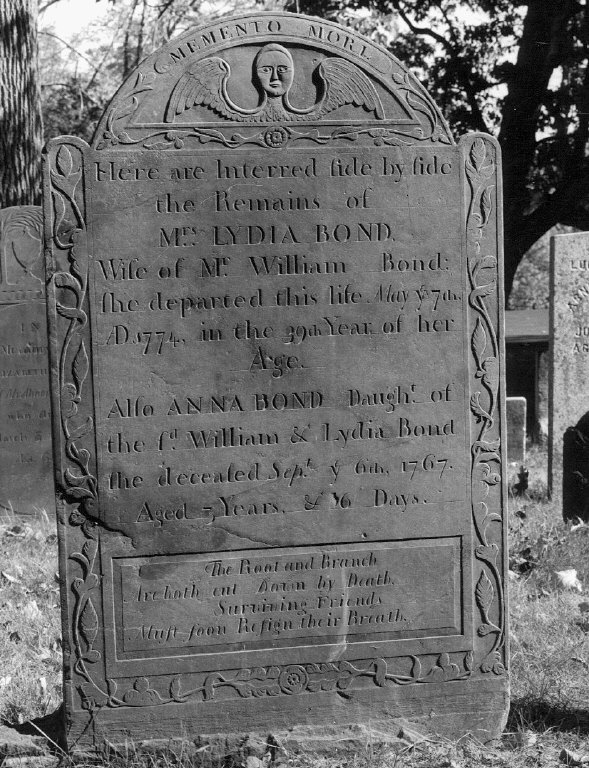 MEMENTO MORI
Here are Interred ſide by ſide
the Remains of
Mrs. LYDIA BOND.
Wife of Mr. William Bond:
ſhe departed this life May ye 7th.
AD. 1774. in the 39th. Year of her
Age.
Alſo ANNA BOND Daught. of
the ſd. William & Lydia Bond
ſhe deceaſed Sept. ye 6th. 1767.
Aged Years. & Days.
The Root and Branch
Are both cut Down by Death,
Surviving Friends
Muſt ſoon Reſign their Breath.
IN
LU
JO